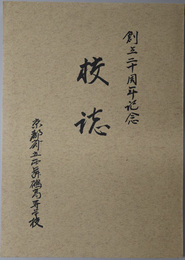 創立三十周年記念
校誌
京都府立西舞鶴高等学校